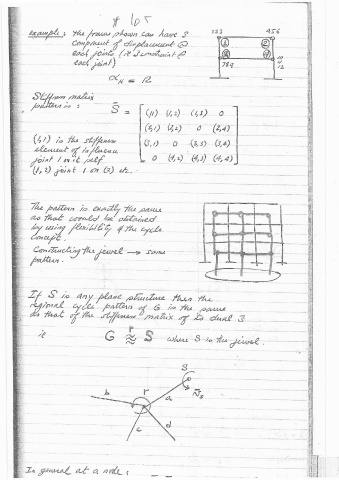 # 105
example: the frames shown can have 3
component of displacement @
each joints (ie 3 constraint @
each joint)
αk = 12
123 456
① ②
③ ④
789 10 11 12
Stiffness matrix
pattern is:
S̄ = [ (,1) (1,2) (1,3) 0
(2,1) (2,2) 0 (2,4)
(3,1) 0 (3,3) (3,4)
0 (4,2) (4,3) (4,4) ]
(1,1) is the stiffness
element of influence
joint 1 on it self
(1,2) joint 1 on (2) etc.
The pattern is exactly the same
as that would be obtained
by using flexibility & the cycle
concept.
Constructing the jewel → same
pattern.
If S is any plane structure then the
regional cycle pattern of G is the same
as that of the stiffness matrix of its dual S
ie G r S where S is the jewel.
S
b r a
c d
In general at a node: